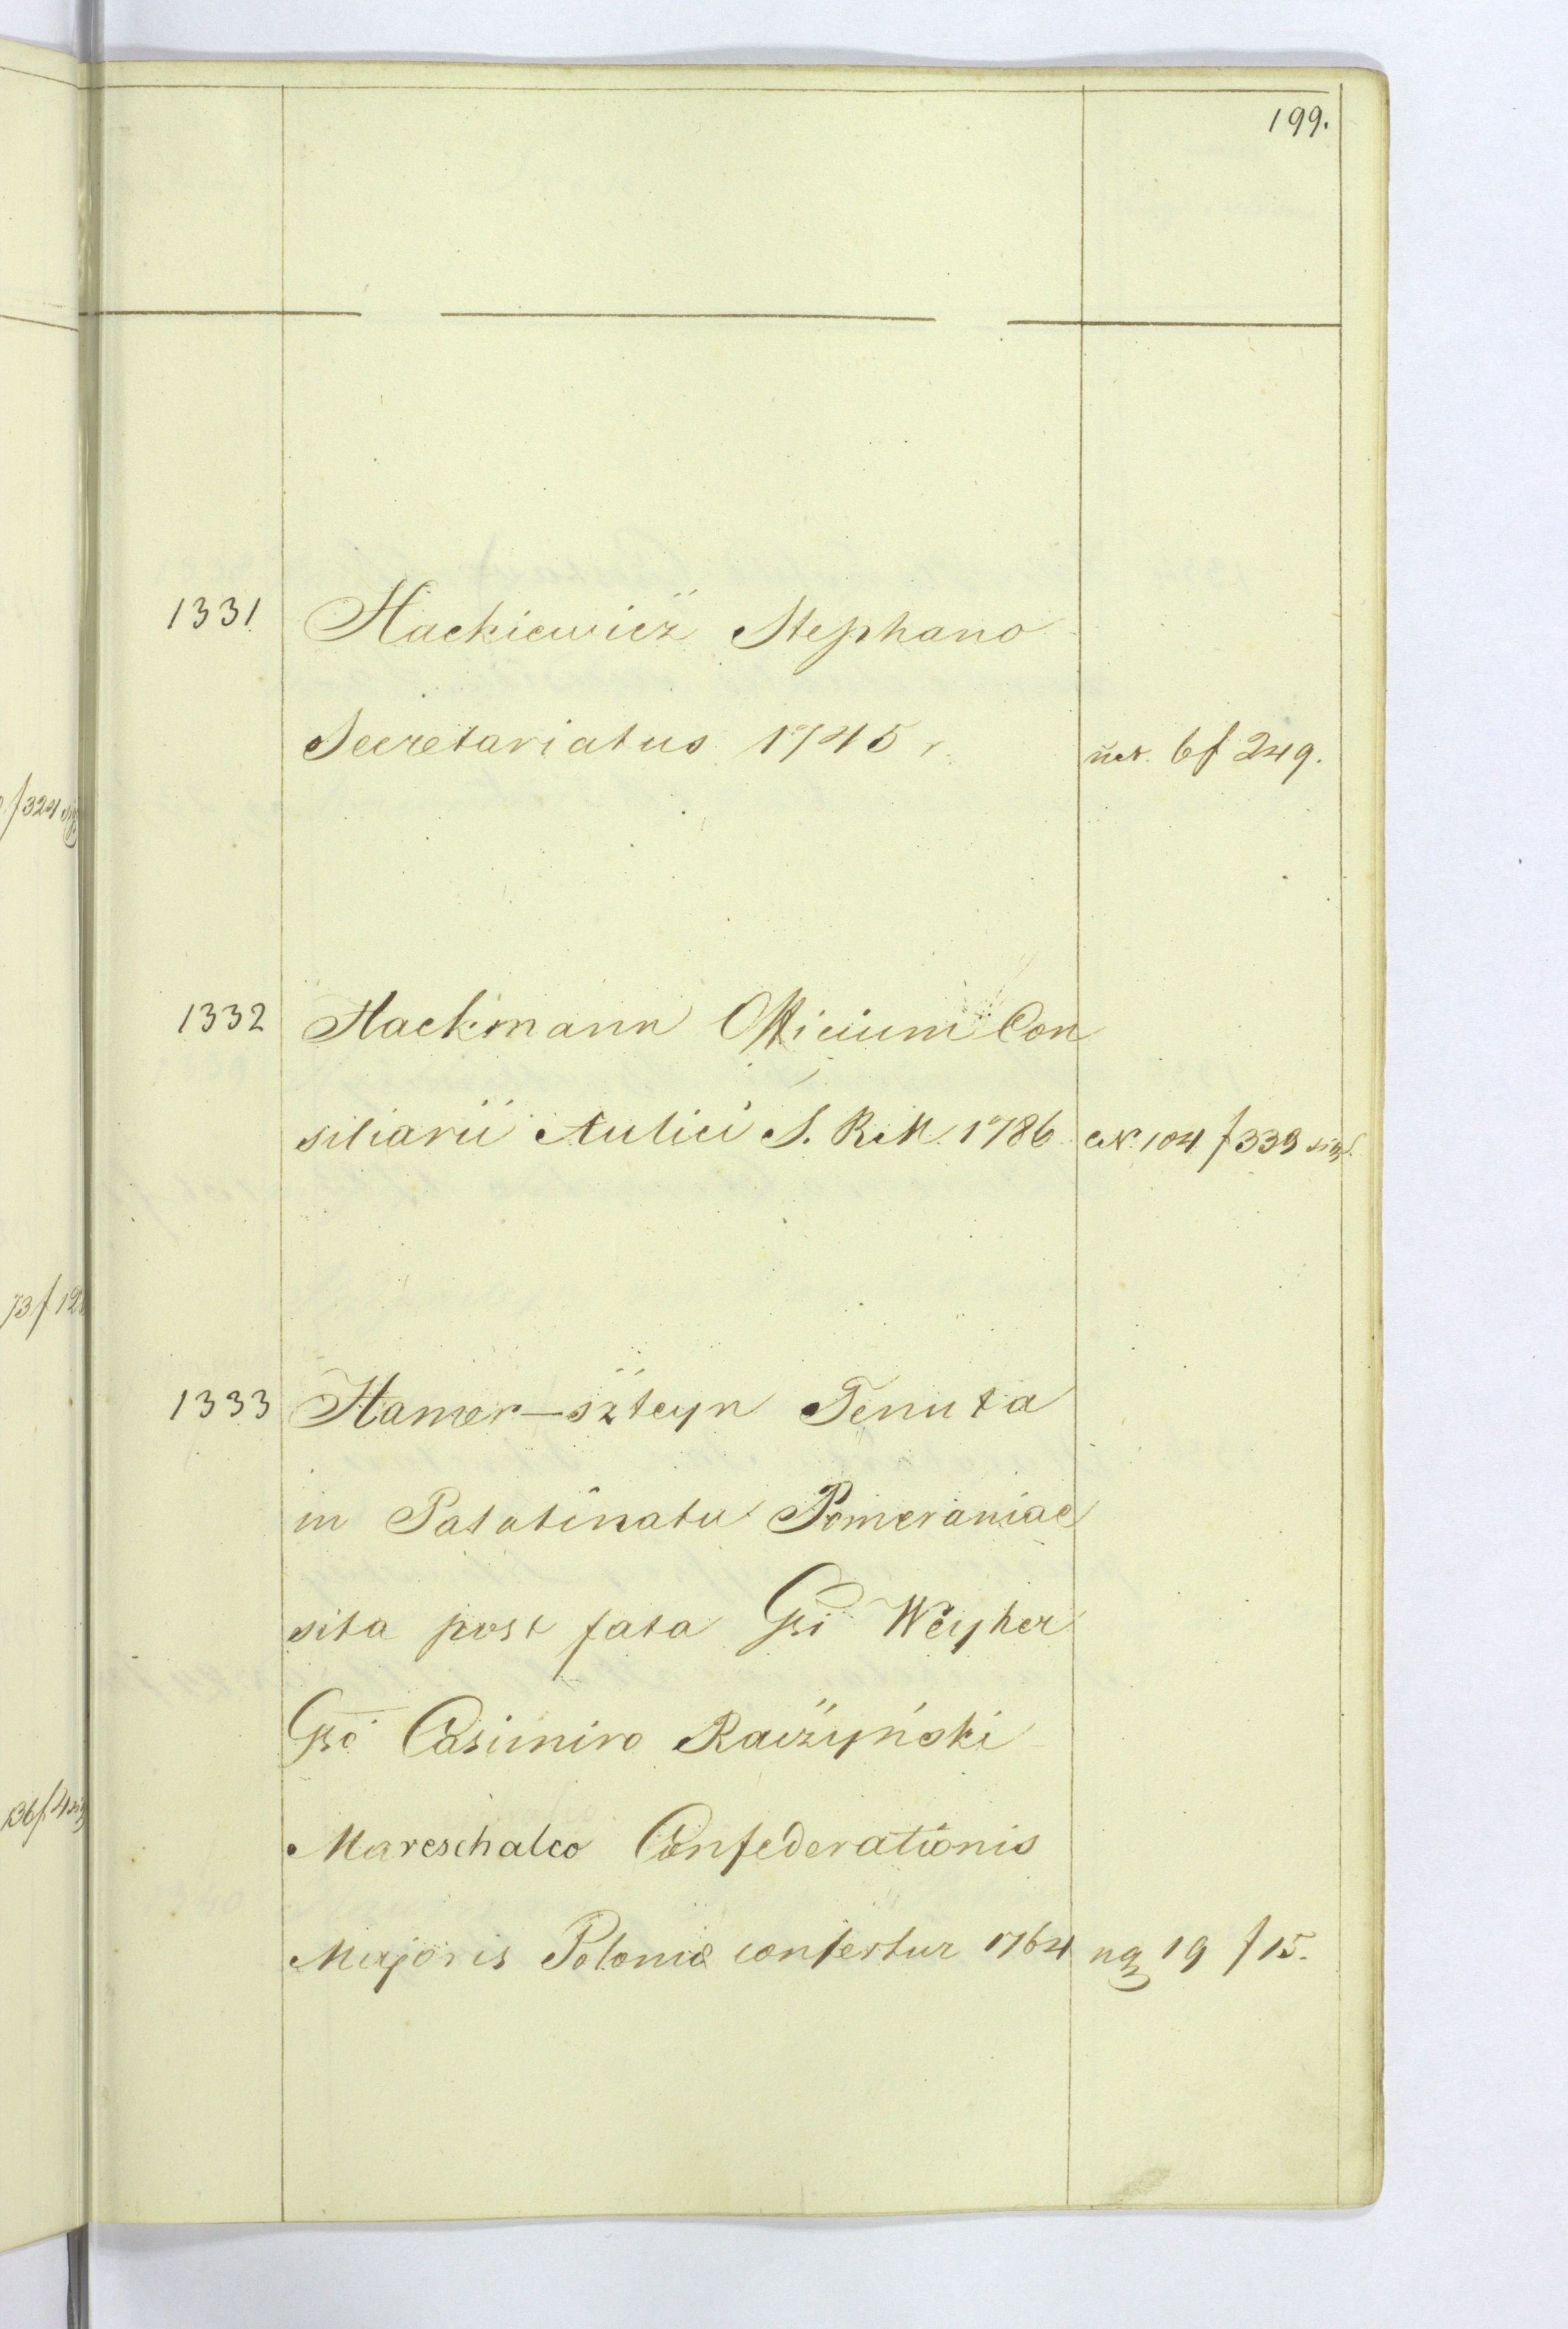 199.
1331 Hackiewicz Stephano
Secretariatus 1745 r. 6 f 249.
1332 Hackmann Officium Con
siliarii Aulici S. R. M. 1786 N. 104 f 333
1333 Hamer-szteyn Tenuta
in Palatinatu Pomeraniae
sita post fata Gsi Weyher
Gso Casimiro Raczyński
Mareschalco Confederationis
Majoris Poloniæ confertur 1764 19 f 15.
/324
73 f 12
36 f 4